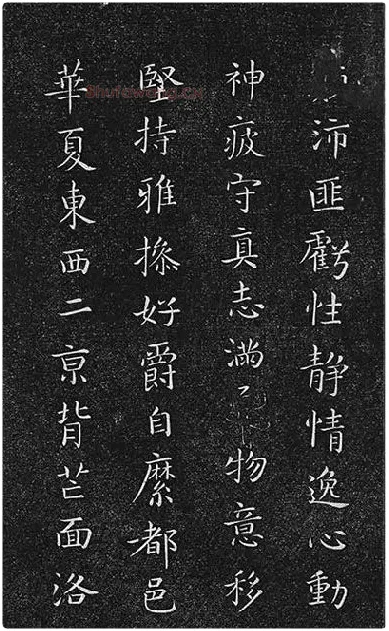 沛匪虧性静情逸心動
神疲守真志滿物意移
堅持雅操好爵自縻都邑
華夏東西二亰背芒面洛